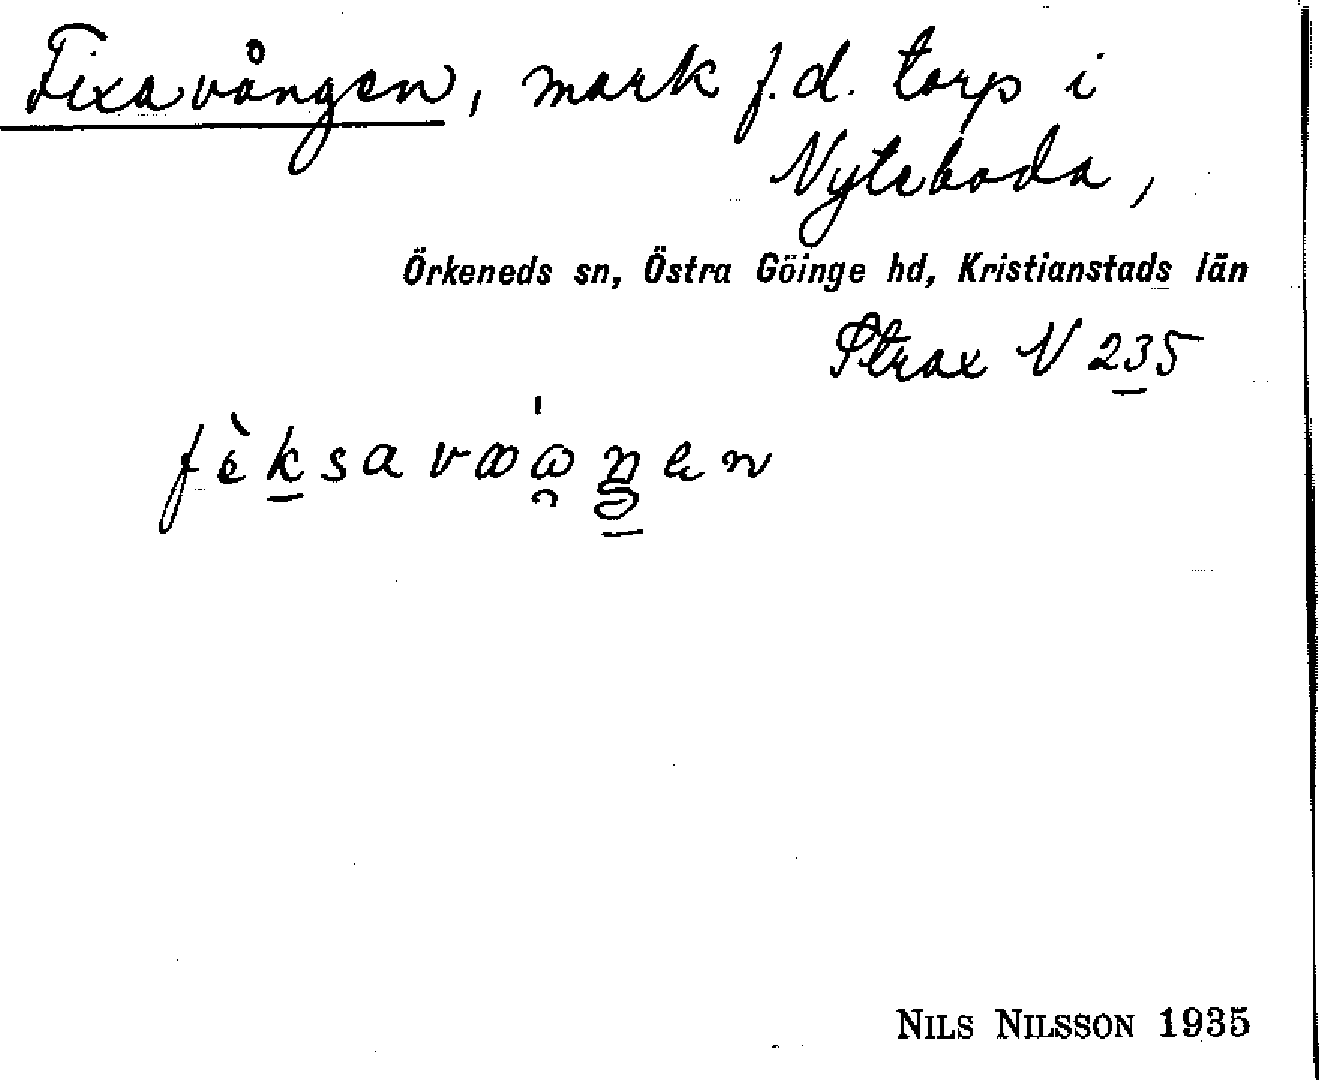 Fixavången, mark f.d. torp i
Nyteboda,
Örkeneds sn, Östra Göinge hd, Kristianstads län
Strax V 235
NILS NILSSON 1935